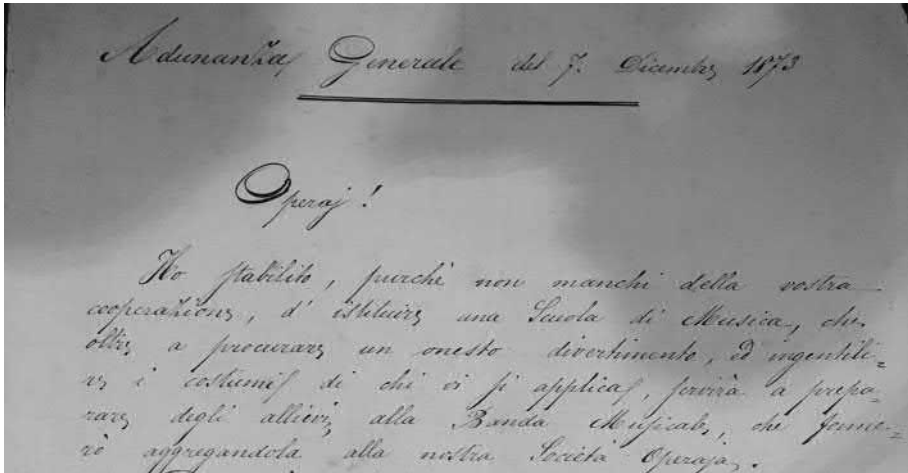 Adunanza Generale del 7. Dicembre 1873
Operaj!
Ho stabilito, purchè non manchi della vostra
cooperazione, d' istituire una Scuola di Musica, che,
oltre a procurare un onesto divertimento, ed ingentili=
re i costumi di chi vi si applica, servirà a prepa=
rare degli allievi alla Banda Musicale, che forme=
rò aggregandola alla nostra Società Operaja.